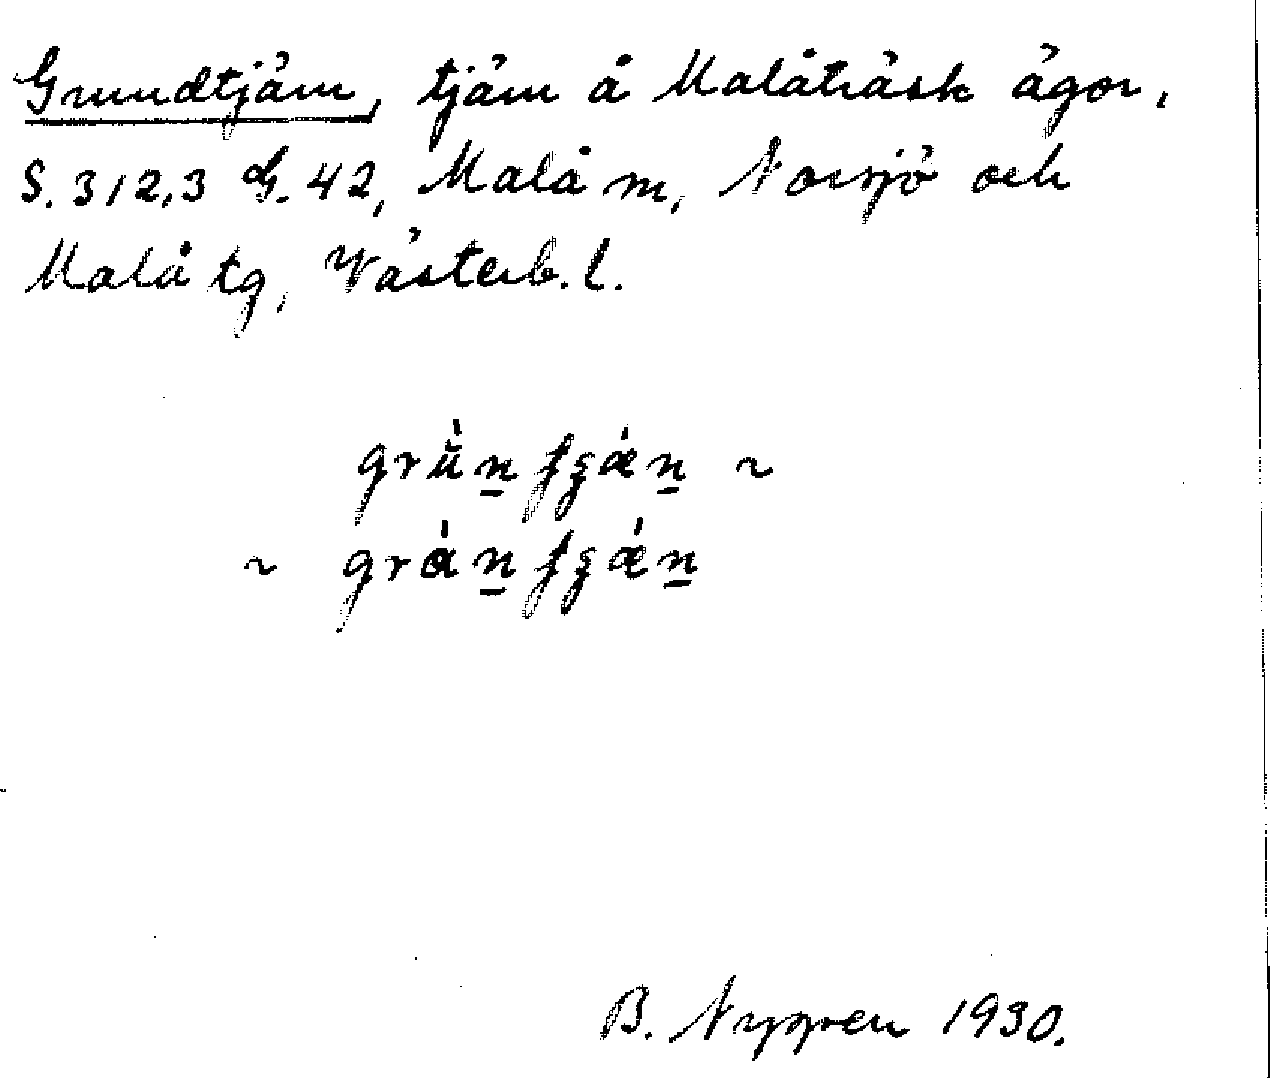 Grundtjärn, tjärn å Malåträsk ägor,
S. 312,3 G. 42, Malå sn, Norsjö och
Malå tg, Västerb. l.
B. Nygren 1930.